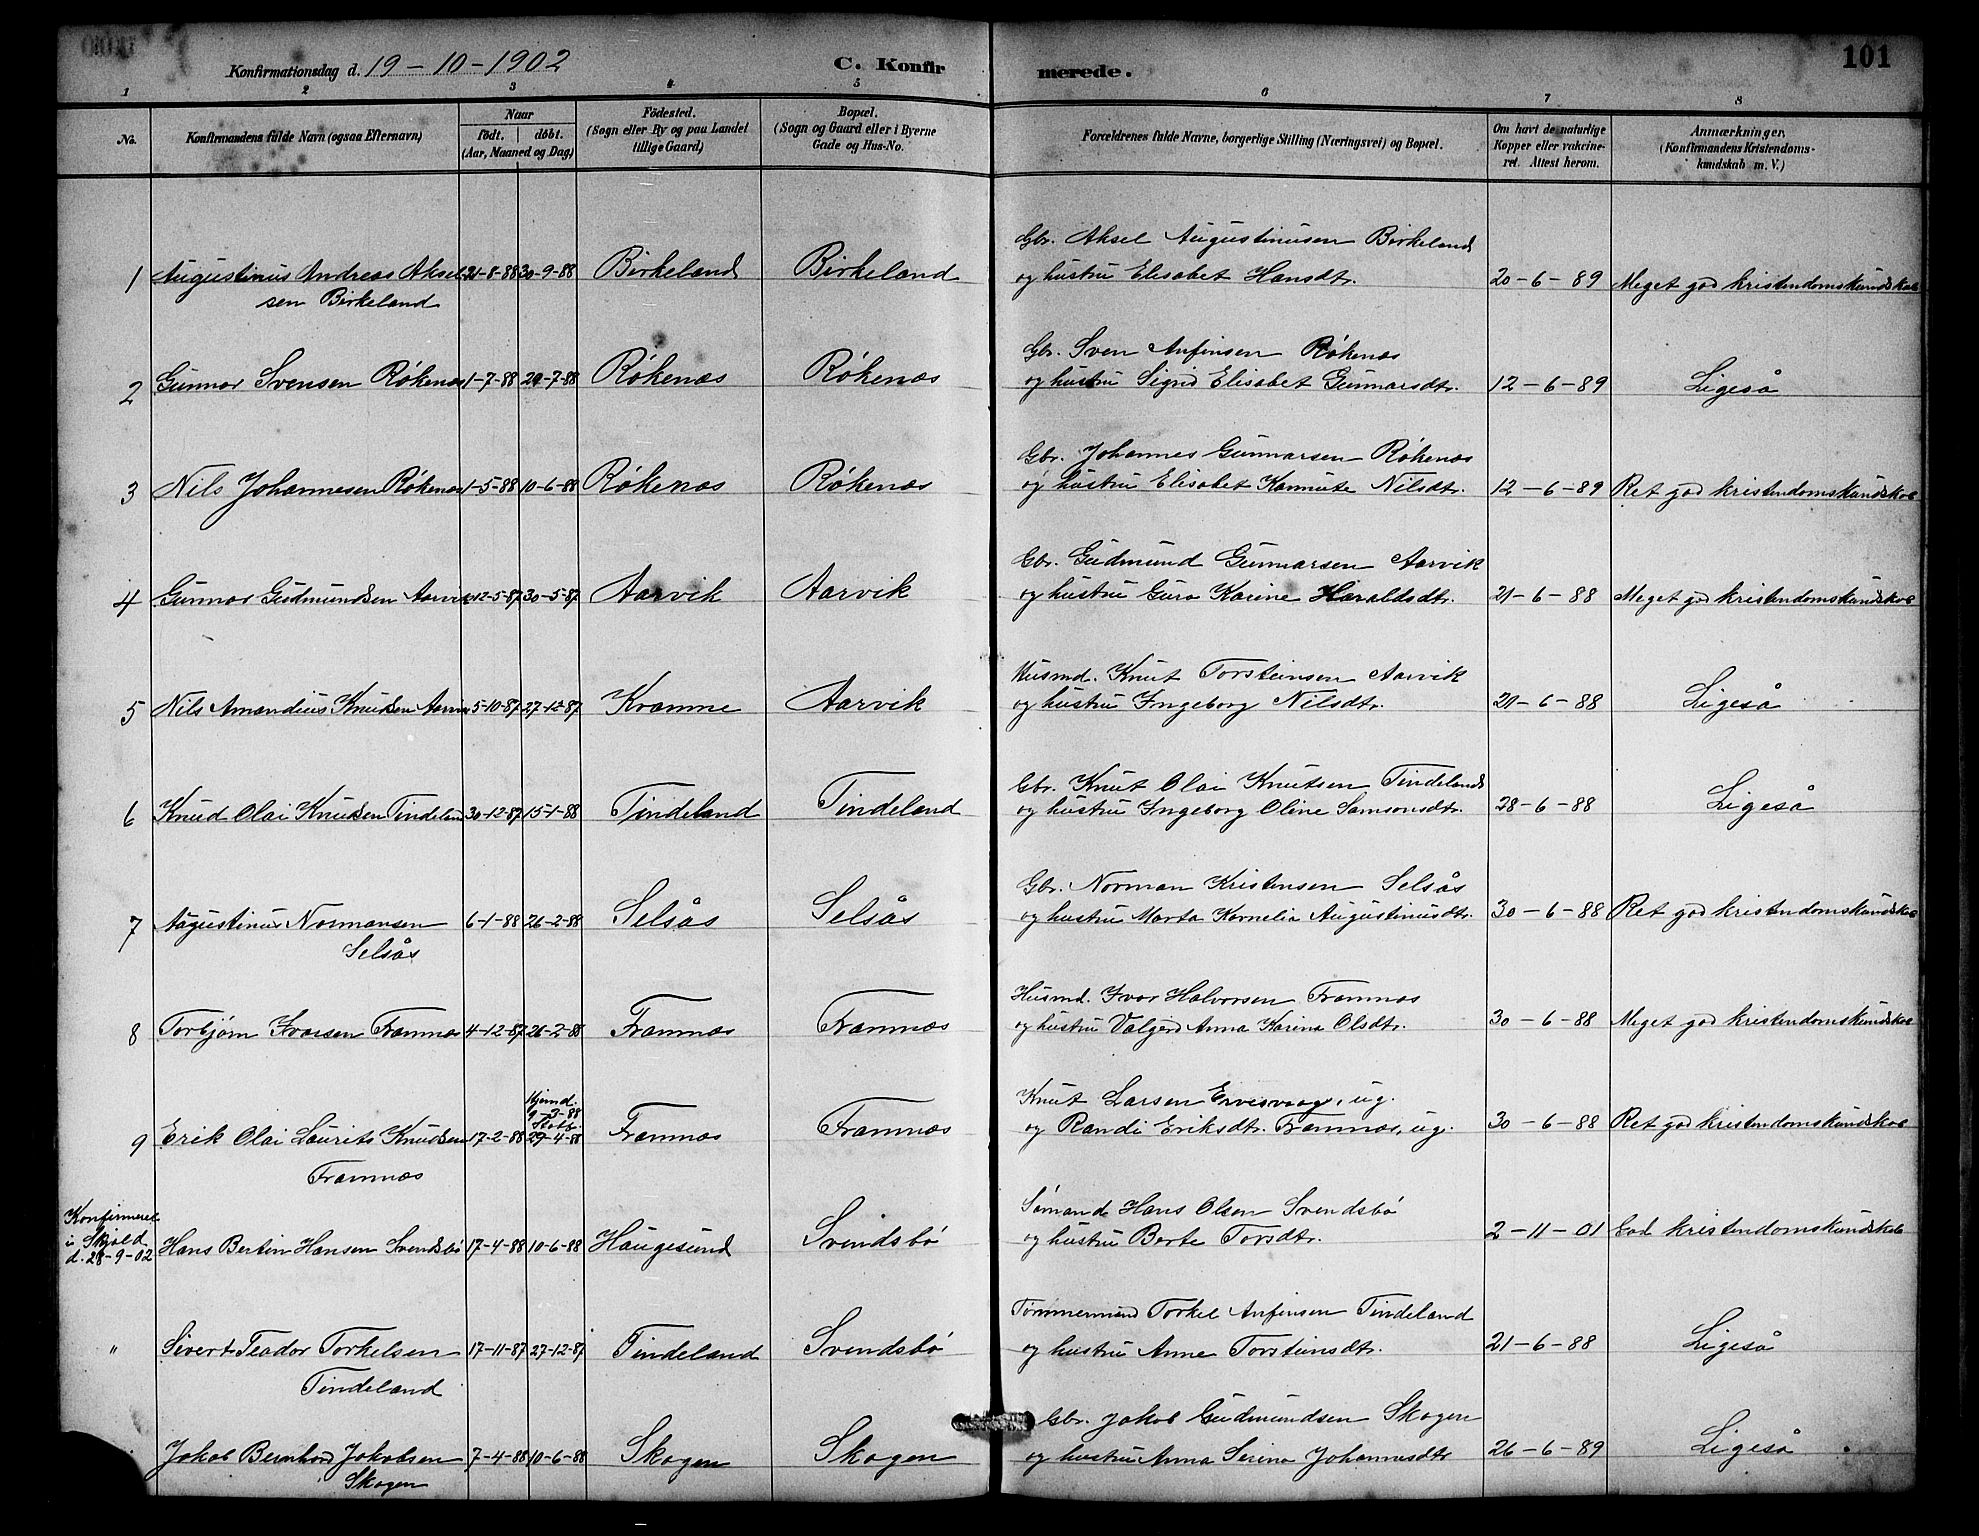 Konfirmationsdag d. 19-10-1902 C. Konfirmerede. 101
1 2 3 4 5 6 7 8
No. Konfirmandens fulde Navn (ogsaa Efternavn)
Naar
födt. döbt.
(Aar, Maaned og Dag)
Födested.
(Sogn eller By og paa Landet
tillige Gaard)
Bopæl.
(Sogn og Gaard eller i Byerne
Gade og Hus-No.
Forældrenes fulde Navne, borgerlige Stilling (Næringsvei) og Bopæl.
Om havt de naturlige
Kopper eller vakcine-
ret. Attest herom.
Anmærkninger,
(Konfirmandens Kristendoms-
kundskab m. V.)
Gbr. Aksel Augustinusen Birkeland
1 Augustinus Andreas Aksel- 21-8-88 30-9-88 Birkeland Birkeland og hustru Elisabet Hansdtr. 20-6-89 Meget god kristendomskundskab
sen Birkeland
Gbr. Sven Anfinsen Rökenæs
2 Gunnar Svensen Rökenæs 1-7-88 29-7-88 Rökenæs Rökenæs og hustru Sigrid Elisabet Gunnarsdtr. 12-6-89 Ligeså
Gbr. Johannes Gunnarsen Rökenæs
3 Nils Johannesen Rökenæs 1-5-88 10-6-88 Rökenæs Rökenæs og hustru Elisabet Kannute Nilsdtr. 12-6-89 Ret god kristendomskundskab
Gbr. Gudmund Gunnarsen Aarvik
4 Gunnar Gudmundsen Aarvik 12-5-87 30-5-87 Aarvik Aarvik og hustru Guro Karine Haraldsdtr. 21-6-88 Meget god kristendomskundskab
Husmd. Knut Torsteinsen Aarvik
5 Nils Amandius Knudsen Aarvik 5-10-87 27-12-87 Kramme Aarvik og hustru Ingeborg Nilsdtr. 21-6-88 Ligeså
Gbr. Knut Olai Knutsen Tindeland
6 Knud Olai Knudsen Tindeland 30-12-87 15-1-88 Tindeland Tindeland og hustru Ingeborg Oline Samsonsdtr. 28-6-88 Ligeså
Gbr. Norman Kristensen Selsås
7 Augustinus Normansen 6-1-88 26-2-88 Selsås Selsås og hustru Marta Kornelia Augustinusdtr. 30-6-88 Ret god kristendomskundskab
Selsås
Husmd. Ivar Halvorsen Framnæs
8 Torbjørn Ivarsen Framnæs 4-12-87 26-2-88 Framnæs Framnæs og hustru Valgerd Anna Karina Olsdtr. 30-6-88 Meget god kristendomskundskab
Hjemd.
9-3-88
Knut Larsen Ervesvaag, ug.
9 Erik Olai Laurits Knudsen 17-2-88 29-4-88 Framnæs Framnæs og Randi Eriksdtr. Framnæs, ug. 30-6-88 Ret god kristendomskundskab
Framnæs
Konfirmeret
i Skjold
d. 28-9-02
Sømand Hans Olsen Svendsbö
Hans Bertin Hansen Svendsbö 17-4-88 10-6-88 Haugesund Svendsbö og hustru Berte Torsdtr. 2-11-01 God kristendomskundskab
Tømmermand Torkel Anfinsen Tindeland
" Sivert Teodor Torkelsen 17-11-87 27-12-87 Tindeland Svendsbö og hustru Anne Torsteinsdtr. 21-6-88 Ligeså
Tindeland
Gbr. Jakob Gudmundsen Skogen
Jakob Bernhard Jakobsen 7-4-88 10-6-88 Skogen Skogen og hustru Anna Serina Johannesdtr 26-6-89 Ligeså
Skogen